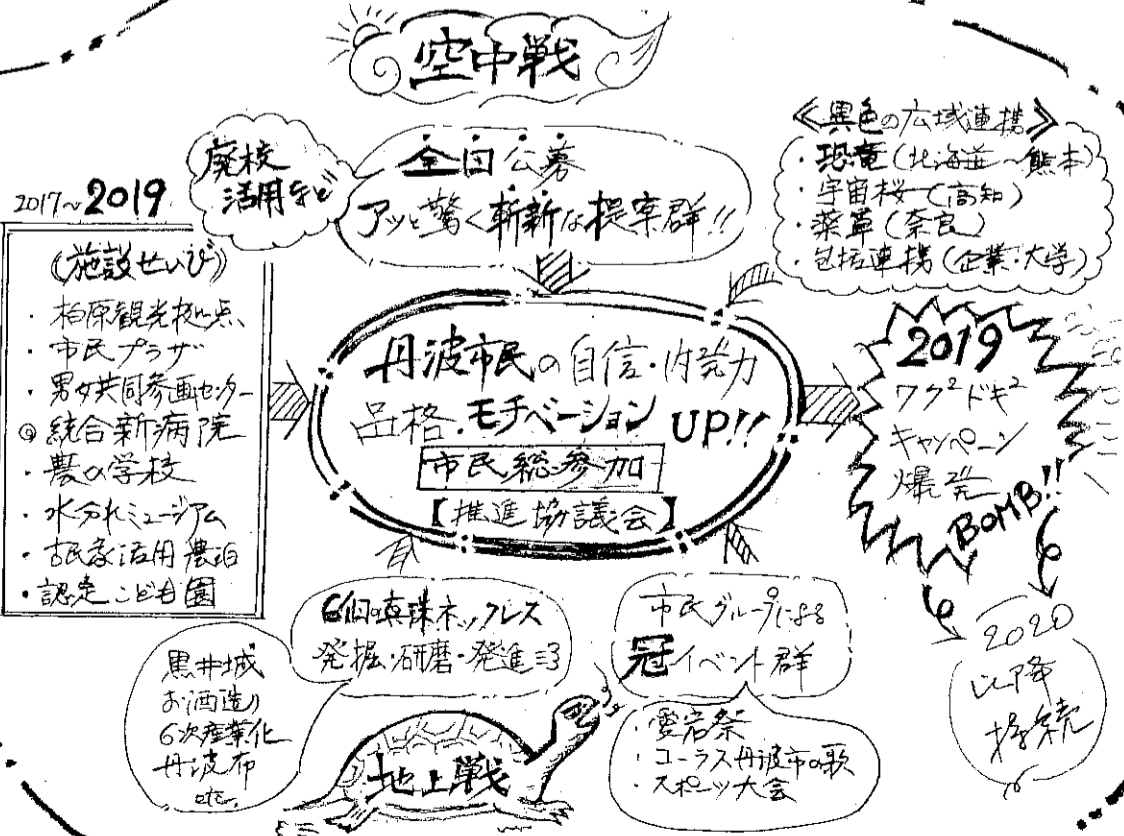 空中戦
廃校
活用など
全国公募
アッと驚く斬新な提案群!!
《異色の広域連携》
・恐竜(北海道～熊本)
・宇宙桜(高知)
・薬草(奈良)
・包括連携(企業・大学)
2017~2019
《施設せいび》
・柏原観光拠点
・市民プラザ
・男女共同参画センター
◎統合新病院
・農の学校
・水分れミュージアム
・古民家活用農泊
・認定こども園
丹波市民の自信・内発力
品格・モチベーションUP!!
市民総参加
【推進協議会】
2019
ワク²ドキ²
キャンペーン
爆発
BOMB!!
2020
以降
持続
6個の真珠ネックレス
発掘・研磨・発進
黒井城
お酒造り
6次産業化
丹波布
etc.
市民グループによる
冠イベント群
・愛宕祭
・コーラス丹波市の歌
・スポーツ大会
地上戦